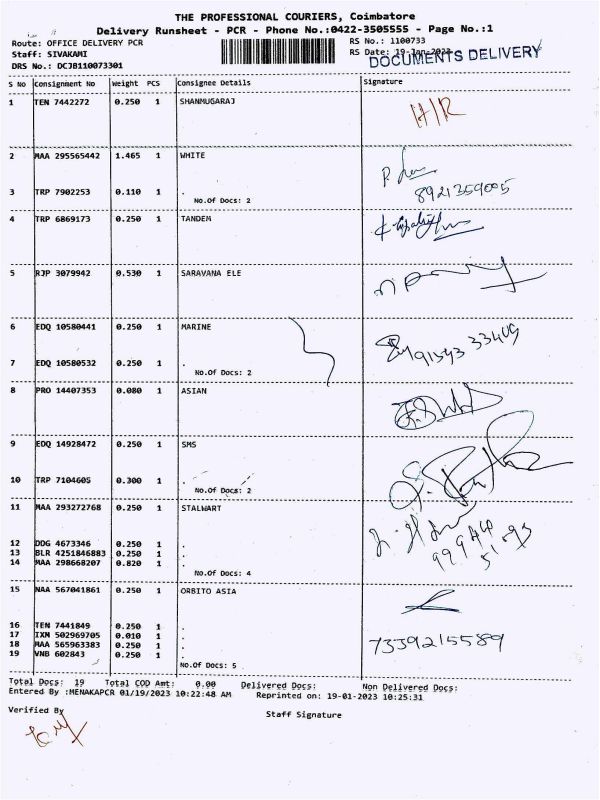 THE PROFESSIONAL COURIERS, Coimbatore
Delivery Runsheet - PCR - Phone No.:0422-3505555 - Page No.:1
Route: OFFICE DELIVERY PCR RS No.: 1100733
Staff: SIVAKAMI RS Date: 19-Jan-2023
DOCUMENTS DELIVERY
DRS No.: DCJB110073301
S No Consignment No Weight PCS Consignee Details Signature
1 TEN 7442272 0.250 1 SHANMUGARAJ
H/R
2 MAA 295565442 1.465 1 WHITE
3 TRP 7902253 0.110 1 .
8921359095
No.Of Docs: 2
4 TRP 6869173 0.250 1 TANDEM
5 RJP 3079942 0.530 1 SARAVANA ELE
6 EDQ 10580441 0.250 1 MARINE
7 EDQ 10580532 0.250 1 .
No.Of Docs: 2
8 PRO 14407353 0.080 1 ASIAN
9 EDQ 14928472 0.250 1 SMS
10 TRP 7104605 0.300 1 .
No.Of Docs: 2
11 MAA 293272768 0.250 1 STALWART
12 DDG 4673346 0.250 1 .
13 BLR 4251846883 0.250 1 .
14 MAA 298668207 0.820 1 .
No.Of Docs: 4
15 NAA 567041861 0.250 1 ORBITO ASIA
16 TEN 7441849 0.250 1 .
17 IXM 502969705 0.010 1 .
18 MAA 565963383 0.250 1 .
7339215589
19 VNB 602843 0.250 1 .
No.Of Docs: 5
Total Docs: 19 Total COD Amt: 0.00 Delivered Docs: Non Delivered Docs:
Entered By :MENAKAPCR 01/19/2023 10:22:48 AM Reprinted on: 19-01-2023 10:25:31
Verified By Staff Signature